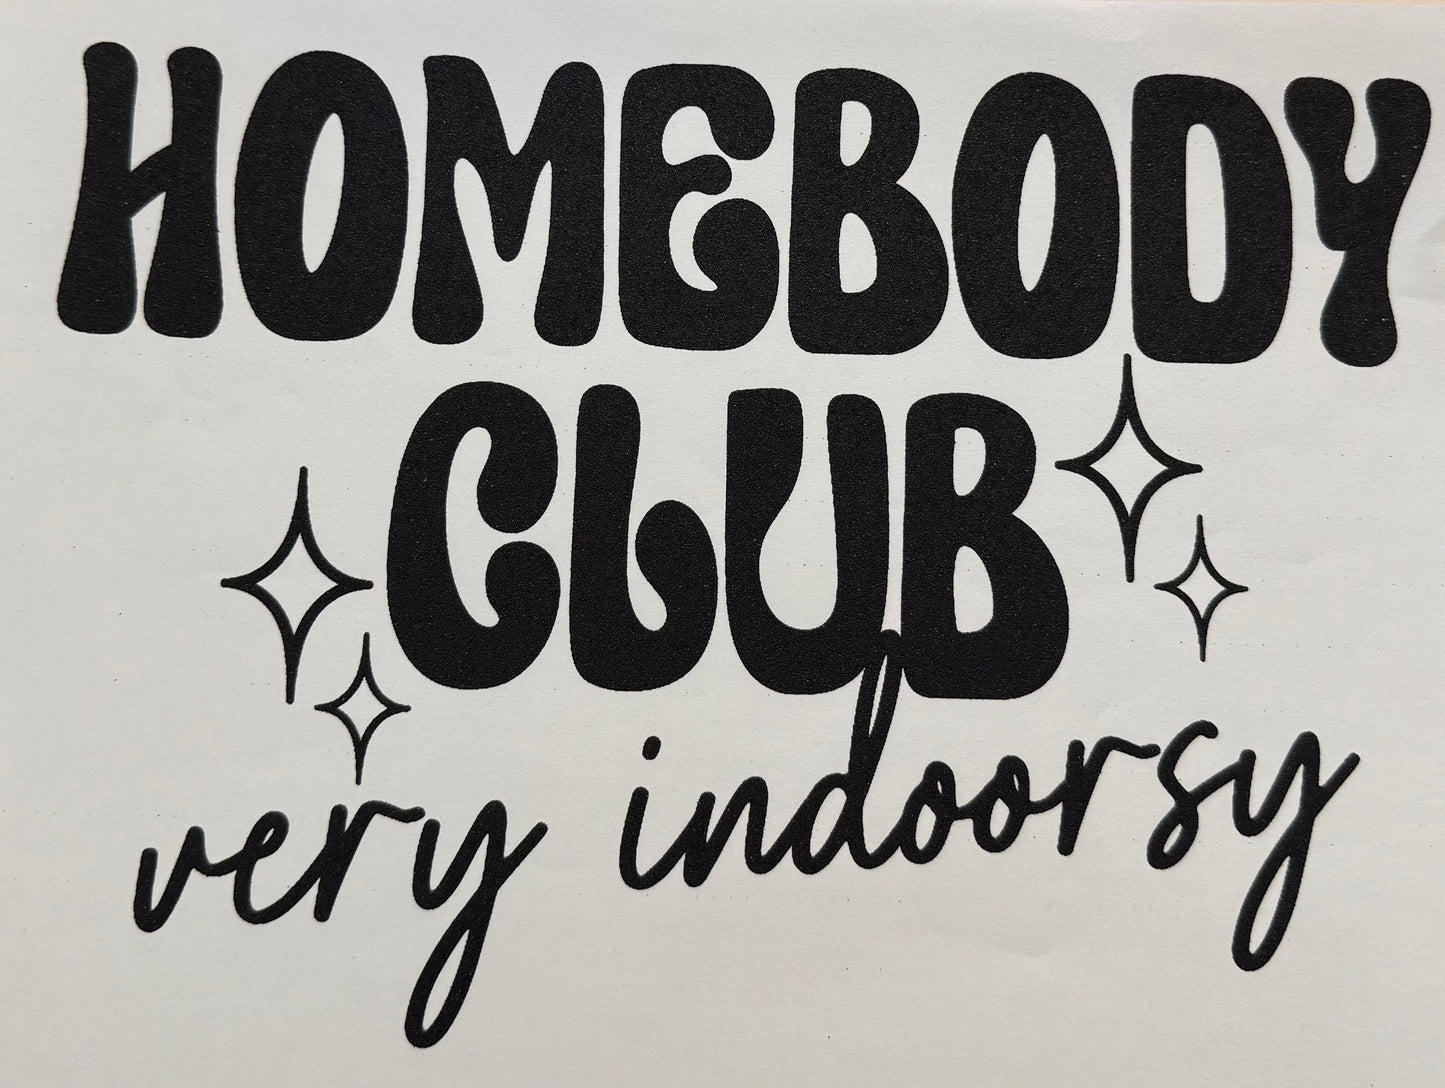 HOMEBODY
CLUB
very indoorsy